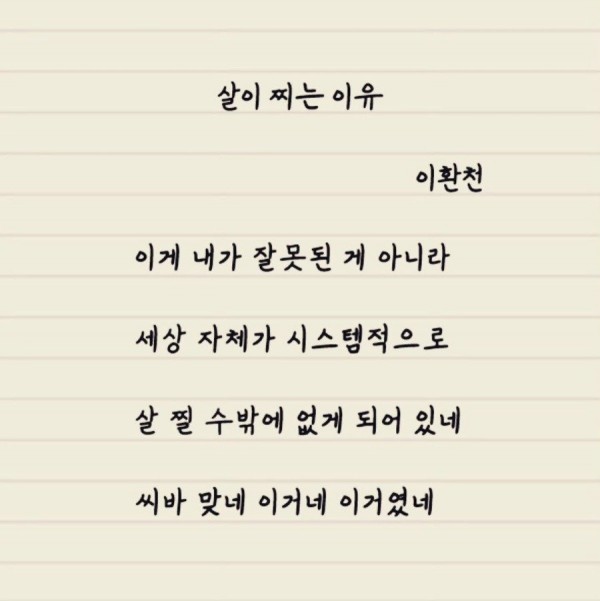 살이 찌는 이유
이환천
이게 내가 잘못된 게 아니라
세상 자체가 시스템적으로
살 찔 수밖에 없게 되어 있네
씨바 맞네 이거네 이거였네